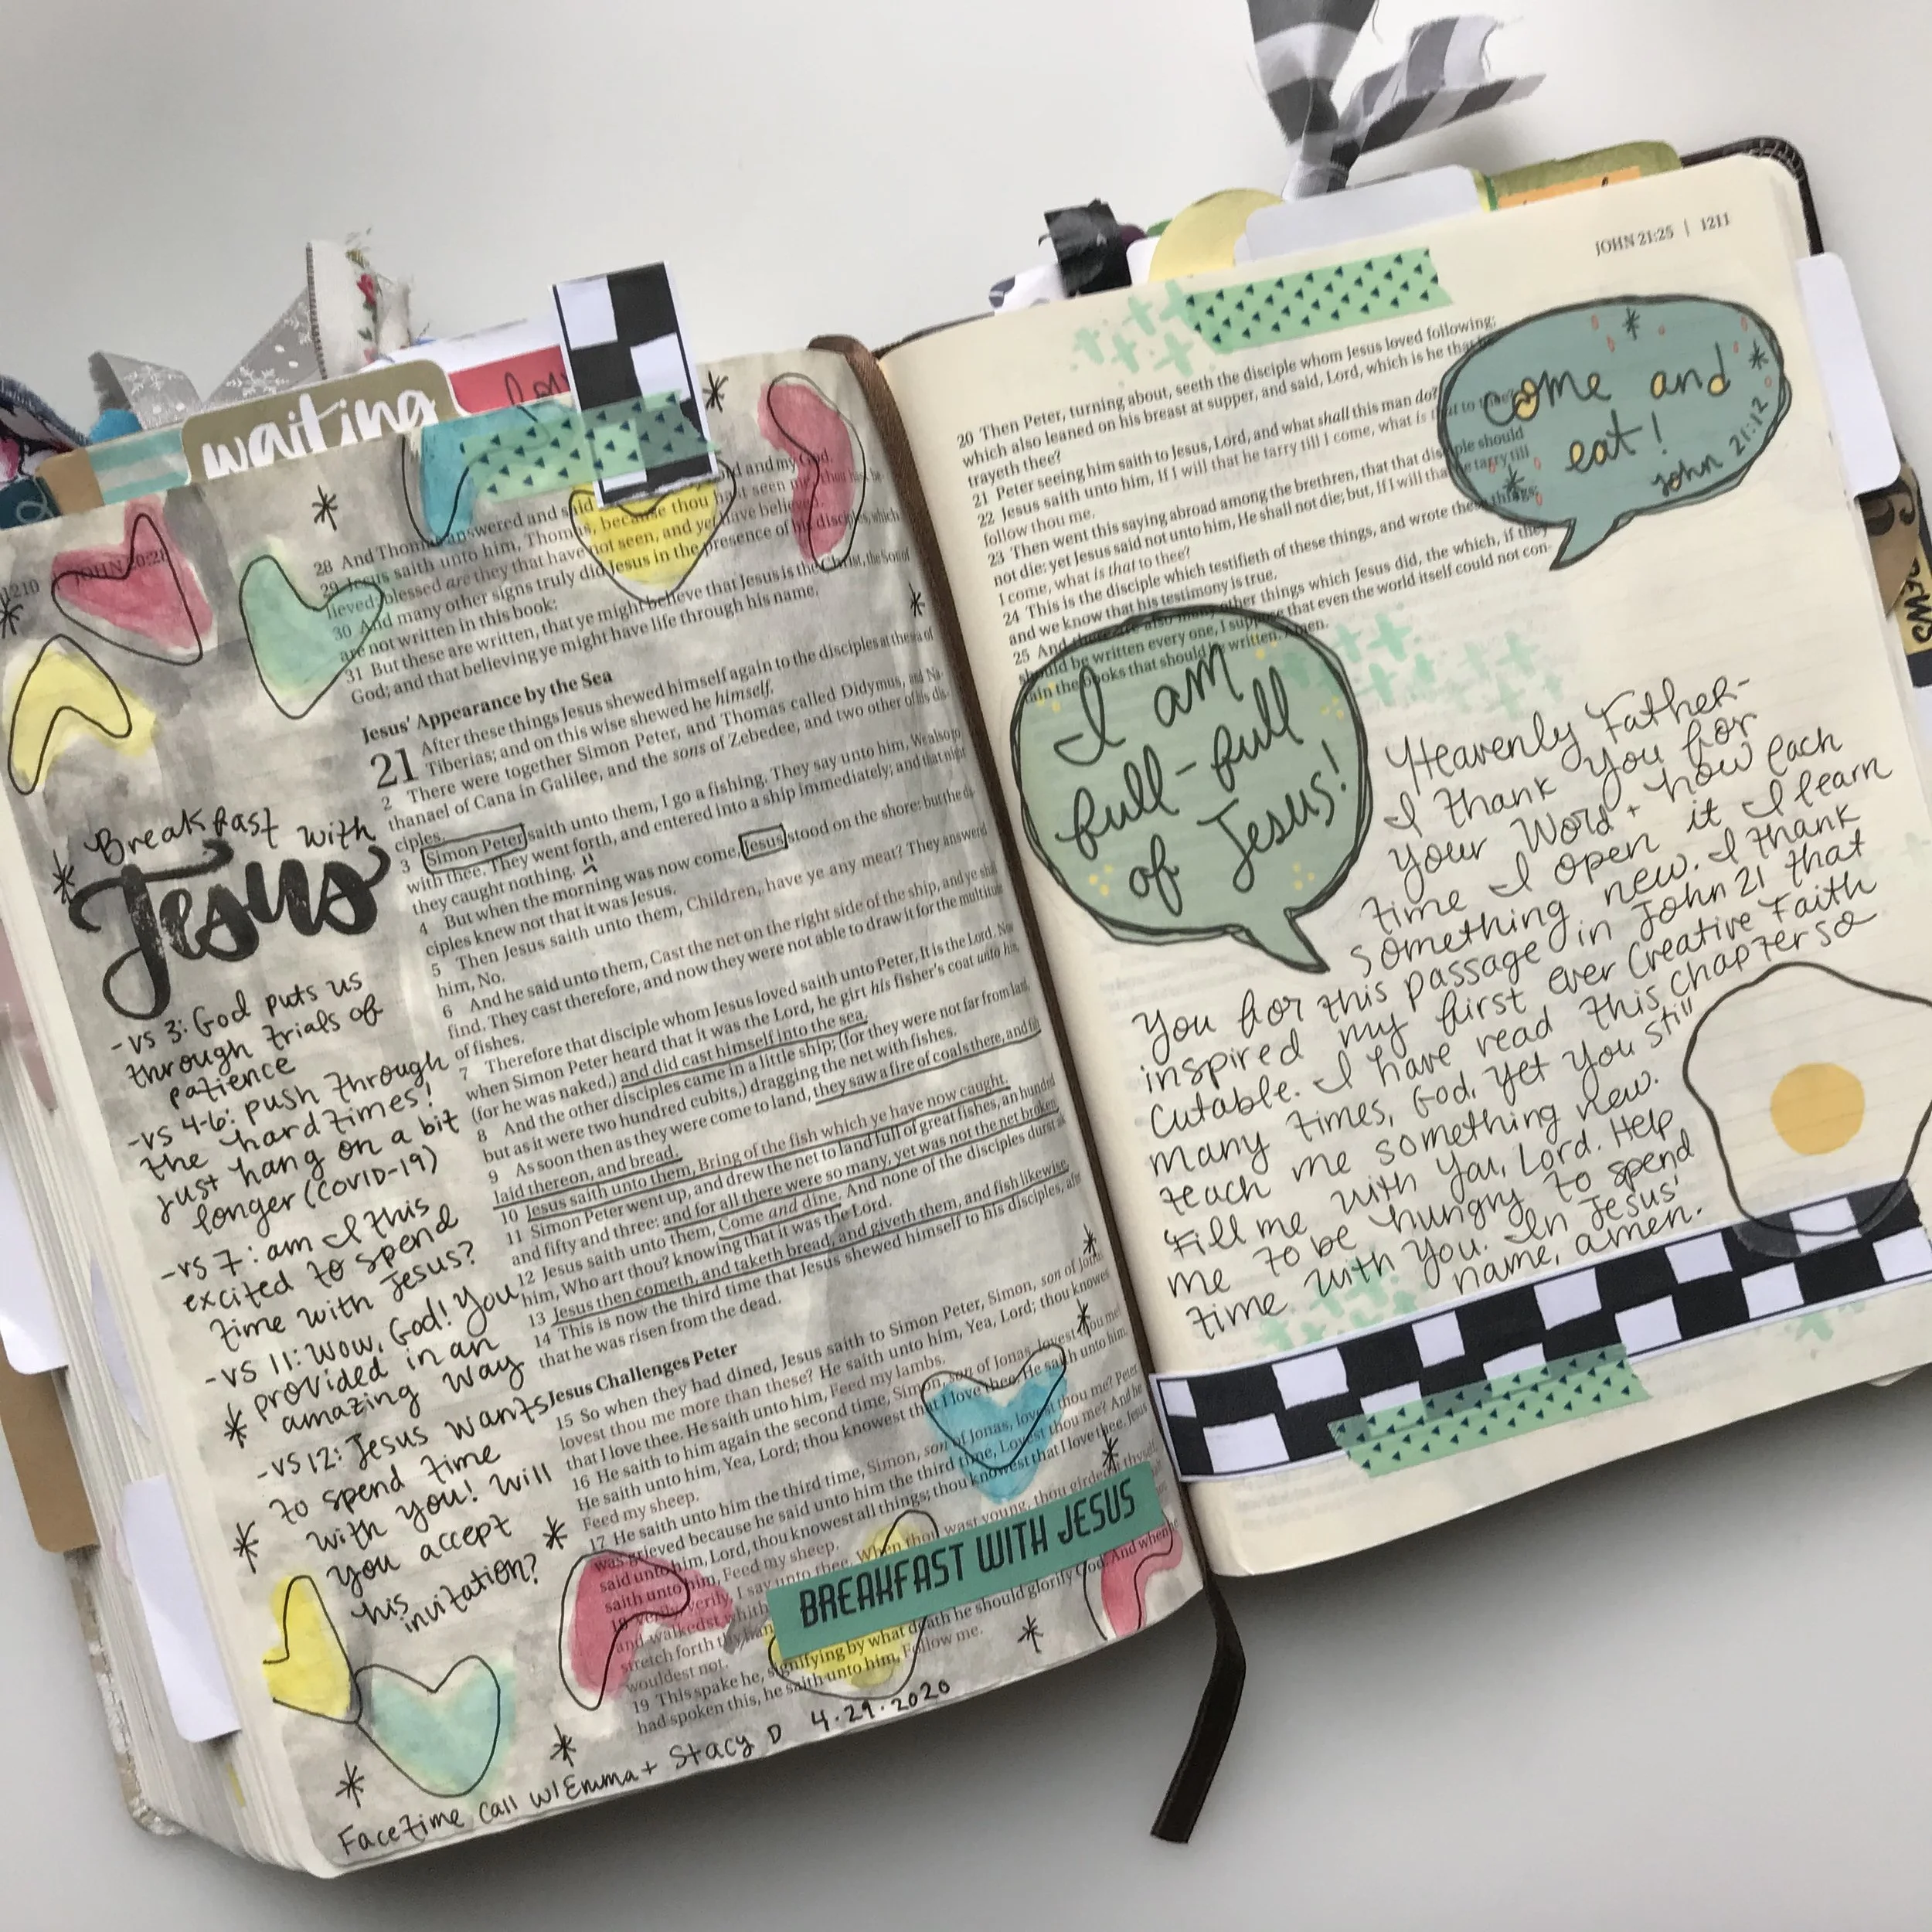 waiting
love
1210
JOHN 20:28
28 And Thomas answered and said and my God.
29 Jesus saith unto him, Thomas, because thou hast seen me, thou hast be-
lieved: blessed are they that have not seen, and yet have believed.
30 And many other signs truly did Jesus in the presence of his disciples, which
are not written in this book:
31 But these are written, that ye might believe that Jesus is the Christ, the Son of
God; and that believing ye might have life through his name.
Jesus' Appearance by the Sea
21 After these things Jesus shewed himself again to the disciples at the sea of
Tiberias; and on this wise shewed he himself.
2 There were together Simon Peter, and Thomas called Didymus, and Na-
thanael of Cana in Galilee, and the sons of Zebedee, and two other of his dis-
ciples.
3 Simon Peter saith unto them, I go a fishing. They say unto him, We also go
with thee. They went forth, and entered into a ship immediately; and that night
they caught nothing.
4 But when the morning was now come, Jesus stood on the shore: but the dis-
ciples knew not that it was Jesus.
5 Then Jesus saith unto them, Children, have ye any meat? They answered
him, No.
6 And he said unto them, Cast the net on the right side of the ship, and ye shall
find. They cast therefore, and now they were not able to draw it for the multitude
of fishes.
7 Therefore that disciple whom Jesus loved saith unto Peter, It is the Lord. Now
when Simon Peter heard that it was the Lord, he girt his fisher's coat unto him,
(for he was naked,) and did cast himself into the sea.
8 And the other disciples came in a little ship; (for they were not far from land,
but as it were two hundred cubits,) dragging the net with fishes.
9 As soon then as they were come to land, they saw a fire of coals there, and fish
laid thereon, and bread.
10 Jesus saith unto them, Bring of the fish which ye have now caught.
11 Simon Peter went up, and drew the net to land full of great fishes, an hundred
and fifty and three: and for all there were so many, yet was not the net broken.
12 Jesus saith unto them, Come and dine. And none of the disciples durst ask
him, Who art thou? knowing that it was the Lord.
13 Jesus then cometh, and taketh bread, and giveth them, and fish likewise.
14 This is now the third time that Jesus shewed himself to his disciples, after
that he was risen from the dead.
Jesus Challenges Peter
15 So when they had dined, Jesus saith to Simon Peter, Simon, son of Jonas,
lovest thou me more than these? He saith unto him, Yea, Lord; thou knowest
that I love thee. He saith unto him, Feed my lambs.
16 He saith to him again the second time, Simon, son of Jonas, lovest thou me?
He saith unto him, Yea, Lord; thou knowest that I love thee. He saith unto him,
Feed my sheep.
17 He saith unto him the third time, Simon, son of Jonas, lovest thou me? Peter
was grieved because he said unto him the third time, Lovest thou me? And he
said unto him, Lord, thou knowest all things; thou knowest that I love thee. Jesus
saith unto him, Feed my sheep.
18 Verily, verily, I say unto thee, When thou wast young, thou girdedst thyself,
and walkedst whith
stretch forth thy han God. And when he
wouldest not.
19 This spake he, signifying by what death he should glorify
had spoken this, he saith unto him, Follow me.
BREAKFAST WITH JESUS
Breakfast with
Jesus
-vs 3: God puts us
through trials of
patience
-vs 4-6: push through
the hard times!
Just hang on a bit
longer (COVID-19)
-vs 7: am I this
excited to spend
time with Jesus?
-vs 11: Wow, God! You
provided in an
amazing way
-vs 12: Jesus wants
to spend time
with you! Will
you accept
his
invitation?
FaceTime call w/Emma + Stacy D 4.29.2020
JOHN 21:25 | 1211
20 Then Peter, turning about, seeth the disciple whom Jesus loved following;
which also leaned on his breast at supper, and said, Lord, which is he that be-
trayeth thee?
21 Peter seeing him saith to Jesus, Lord, and what shall this man do?
22 Jesus saith unto him, If I will that he tarry till I come, what is that to thee?
follow thou me.
23 Then went this saying abroad among the brethren, that that disciple should
not die: yet Jesus said not unto him, He shall not die; but, If I will that he tarry till
I come, what is that to thee?
24 This is the disciple which testifieth of these things, and wrote these things:
and we know that his testimony is true.
25 And there are also many other things which Jesus did, the which, if they
should be written every one, I suppose that even the world itself could not con-
tain the books that should be written. Amen.
come and
eat!
John 21:12
I am
full-full
of Jesus!
Heavenly Father-
I thank you for
your Word + how each
time I open it I learn
something new. I thank
you for this passage in John 21 that
inspired my first ever Creative Faith
Cutable. I have read this chapter so
many times, God, yet you still
teach me something new.
Fill me with you, Lord. Help
me to be hungry to spend
time with you. In Jesus'
name, amen.